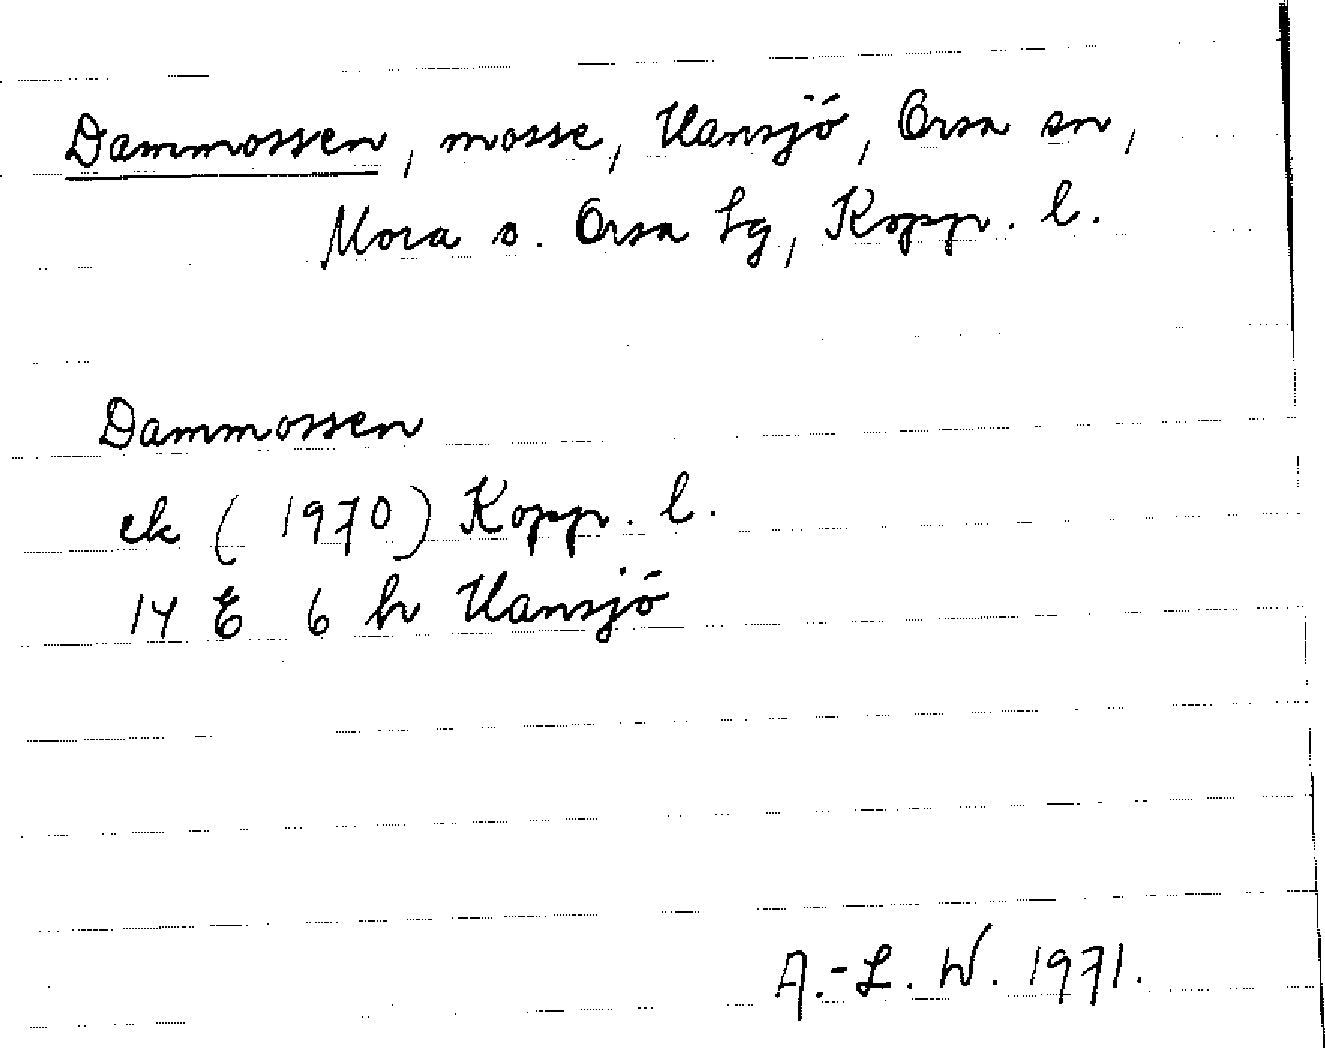 Dammossen, mosse, Hansjö, Orsa sn,
Mora o. Orsa tg, Kopp. l.
Dammossen
ek (1970) Kopp. l.
14 E 6 h Hansjö
A.-L. W. 1971.